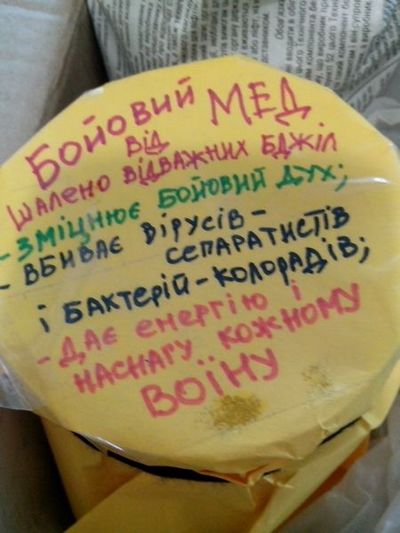 Бойовий МЕД
від
шалено відважних бджіл
- зміцнює бойовий дух;
- вбиває вірусів-
сепаратистів
і бактерій-колорадів;
- дає енергію і
наснагу кожному
воїну